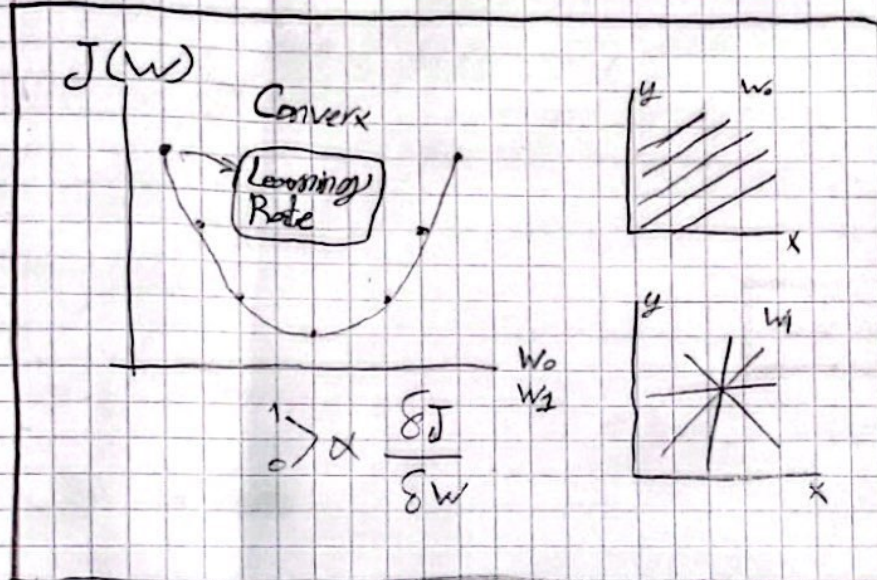 J(W)
Converx
Learning
Rate
W₀
W1
1
0 > α δJ
δW
y W₀
x
y W1
x